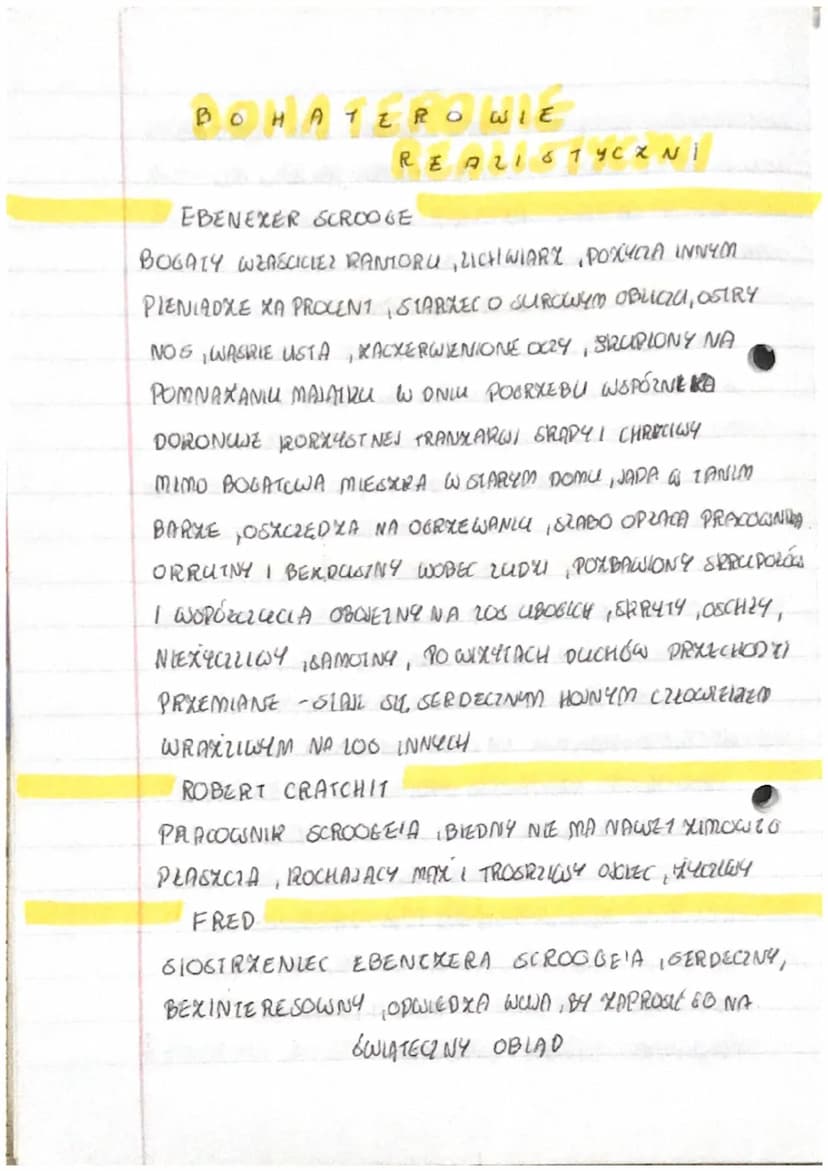 BOHATEROWIE
REALISTYCZNI
EBENEZER SCROOGE
BOGATY WŁAŚCICIEL KANTORU, LICHWIARZ, POŻYCZA INNYM
PIENIĄDZE ZA PROCENT, STARZEC O SUROWYM OBLICZU, OSTRY
NOS, WĄSKIE USTA, ZACZERWIENIONE OCZY, SKUPIONY NA
POMNAŻANIU MAJĄTKU W DNIU POGRZEBU WSPÓLNIKA
DOKONUJE KORZYSTNEJ TRANZAKCJI SKĄPY I CHCIWY
MIMO BOGATCWA MIESZKA W STARYM DOMU, JADA W TANIM
BARZE, OSZCZĘDZA NA OGRZEWANIU, SŁABO OPŁACA PRACOWNIKA
OKRUTNY I BEZDUSZNY WOBEC LUDZI, POZBAWIONY SKRUPUŁÓW
I WSPÓŁCZUCIA OBOJĘTNY NA LOS UBOGICH, SKRYTY, OSCHŁY,
NIEŻYCZLIWY, SAMOTNY, PO WIZYTACH DUCHÓW PRZECHODZI
PRZEMIANE - STAJE SIĘ SERDECZNYM HOJNYM CZŁOWIEKIEM
WRAŻLIWYM NA LOS INNYCH
ROBERT CRATCHIT
PRACOWNIK SCROOGE'A, BIEDNY NIE MA NAWET ZIMOWEGO
PŁASZCZA, KOCHAJĄCY MĄŻ I TROSKLIWY OJCIEC, ŻYCZLIWY
FRED
SIOSTRZENIEC EBENEZERA SCROOGE'A, SERDECZNY,
BEZINTERESOWNY, ODWIEDZA WUJA, BY ZAPROSIĆ GO NA
ŚWIĄTECZNY OBIAD